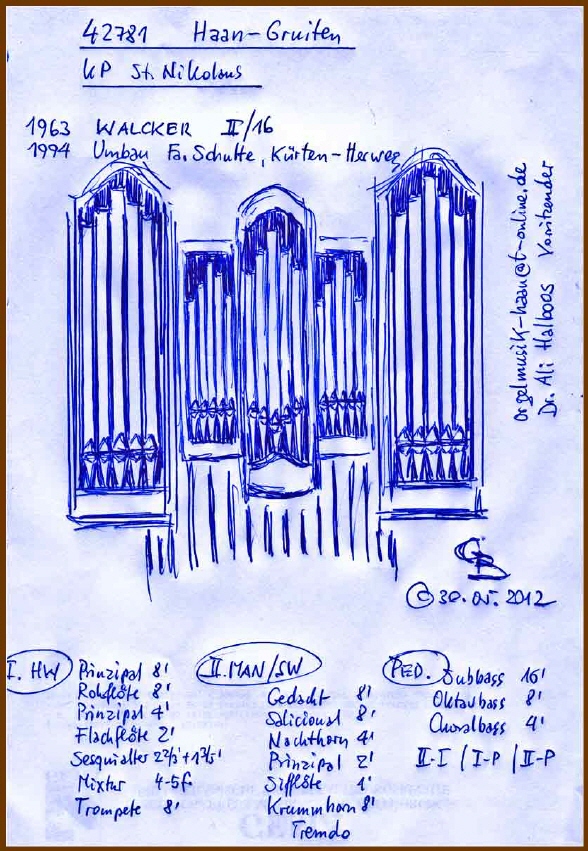 42781 Haan-Gruiten
kP St. Nikolaus
1963 WALCKER II/16
1994 Umbau Fa. Schulte, Kürten-Herweg
orgelmusik-haan@t-online.de
Dr. Ali Halboos Vorsitzender
© 30.05.2012
I. HW
Prinzipal 8'
Rohrflöte 8'
Prinzipal 4'
Flachflöte 2'
Sesquialter 2 2/3' + 1 3/5'
Mixtur 4-5f
Trompete 8'
II. MAN/SW
Gedackt 8'
Salicional 8'
Nachthorn 4'
Prinzipal 2'
Sifflöte 1'
Krummhorn 8'
Tremolo
PED.
Subbass 16'
Oktavbass 8'
Choralbass 4'
II-I / I-P / II-P